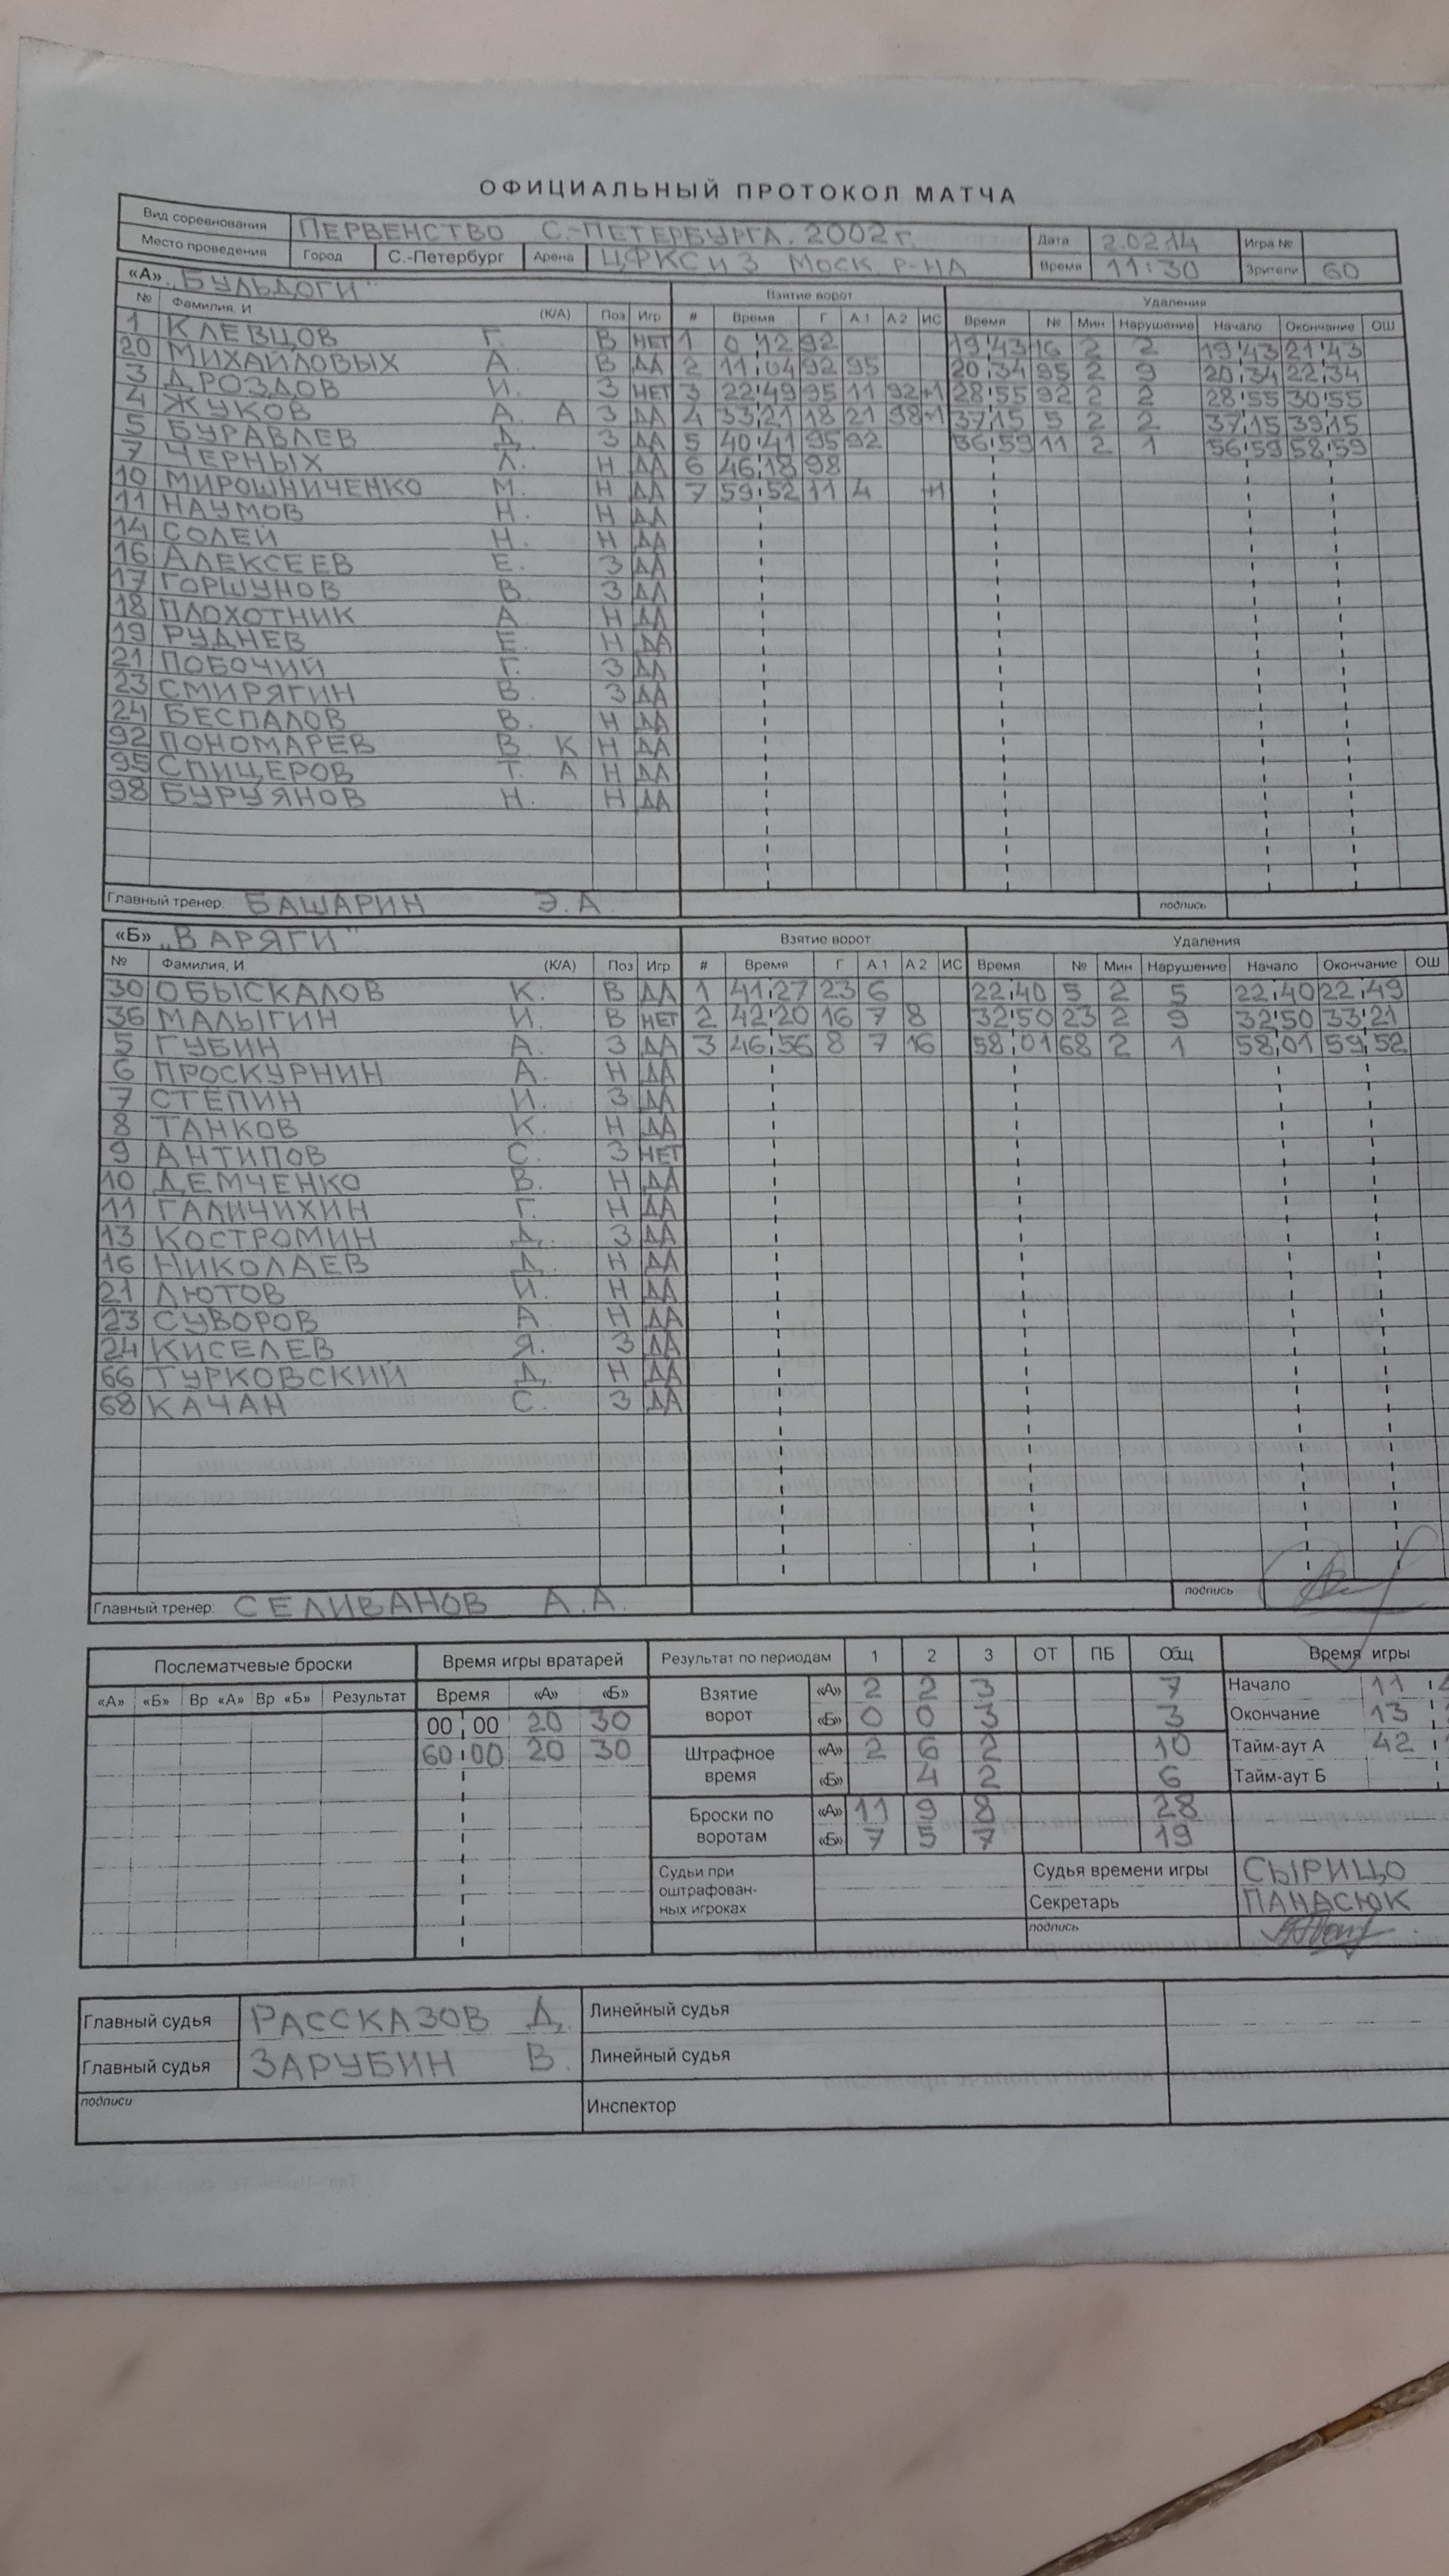 ОФИЦИАЛЬНЫЙ ПРОТОКОЛ МАТЧА
Вид соревнования ПЕРВЕНСТВО С.-ПЕТЕРБУРГА. 2002 г. Дата 2.02.14 Игра №
Место проведения Город С.-Петербург Арена ЦФКСиЗ МОСК. Р-НА Время 11:30 Зрители 60
«А» „БУЛЬДОГИ" Взятие ворот Удаления
№ Фамилия, И (К/А) Поз Игр # Время Г А 1 А 2 ИС Время № Мин Нарушение Начало Окончание ОШ
1 КЛЕВЦОВ Г. В НЕТ 1 0 12 92 19:43 16 2 2 19:43 21:43
20 МИХАЙЛОВЫХ А. В ДА 2 11:04 92 95 20:34 95 2 9 20:34 22:34
3 ДРОЗДОВ И. З НЕТ 3 22:49 95 11 92 +1 28:55 92 2 2 28:55 30:55
4 ЖУКОВ А. А З ДА 4 33:21 18 21 98 +1 37:15 5 2 2 37:15 39:15
5 БУРАВЛЕВ Д. З ДА 5 40:41 95 92 56:59 11 2 1 56:59 58:59
7 ЧЕРНЫХ Л. Н ДА 6 46:18 98
10 МИРОШНИЧЕНКО М. Н ДА 7 59:52 11 4 +1
11 НАУМОВ Н. Н ДА
14 СОЛЕЙ Н. Н ДА
16 АЛЕКСЕЕВ Е. З ДА
17 ГОРШУНОВ В. З ДА
18 ПЛОХОТНИК А. Н ДА
19 РУДНЕВ Е. Н ДА
21 ПОБОЧИЙ Г. З ДА
23 СМИРЯГИН В. З ДА
24 БЕСПАЛОВ В. Н ДА
92 ПОНОМАРЕВ В. К Н ДА
95 СПИЦЕРОВ Т. А Н ДА
98 БУРУЯНОВ Н. Н ДА
Главный тренер: БАШАРИН Э.А. подпись
«Б» „ВАРЯГИ" Взятие ворот Удаления
№ Фамилия, И (К/А) Поз Игр # Время Г А 1 А 2 ИС Время № Мин Нарушение Начало Окончание ОШ
30 ОБЫСКАЛОВ К. В ДА 1 41:27 23 6 22:40 5 2 5 22:40 22:49
36 МАЛЫГИН И. В НЕТ 2 42:20 16 7 8 32:50 23 2 9 32:50 33:21
5 ГУБИН А. З ДА 3 46:56 8 7 16 58:01 68 2 1 58:01 59:52
6 ПРОСКУРНИН А. Н ДА
7 СТЕПИН И. З ДА
8 ТАНКОВ К. Н ДА
9 АНТИПОВ С. З НЕТ
10 ДЕМЧЕНКО В. Н ДА
11 ГАЛИЧИХИН Г. Н ДА
13 КОСТРОМИН Д. З ДА
16 НИКОЛАЕВ Д. Н ДА
21 ЛЮТОВ И. Н ДА
23 СУВОРОВ А. Н ДА
24 КИСЕЛЕВ Я. З ДА
66 ТУРКОВСКИЙ Д. Н ДА
68 КАЧАН С. З ДА
Главный тренер: СЕЛИВАНОВ А.А. подпись
Послематчевые броски Время игры вратарей Результат по периодам 1 2 3 ОТ ПБ Общ Время игры
«А» «Б» Вр «А» Вр «Б» Результат Время «А» «Б» Взятие ворот «А» 2 2 3 7 Начало 11
00:00 20 30 «Б» 0 0 3 3 Окончание 13
60:00 20 30 Штрафное время «А» 2 6 2 10 Тайм-аут А 42
«Б» 4 2 6 Тайм-аут Б
Броски по воротам «А» 11 9 8 28
«Б» 7 5 7 19
Судьи при оштрафован-ных игроках Судья времени игры СЫРИЦО
Секретарь ПАНАСЮК
подпись
Главный судья РАССКАЗОВ Д. Линейный судья
Главный судья ЗАРУБИН В. Линейный судья
подписи Инспектор